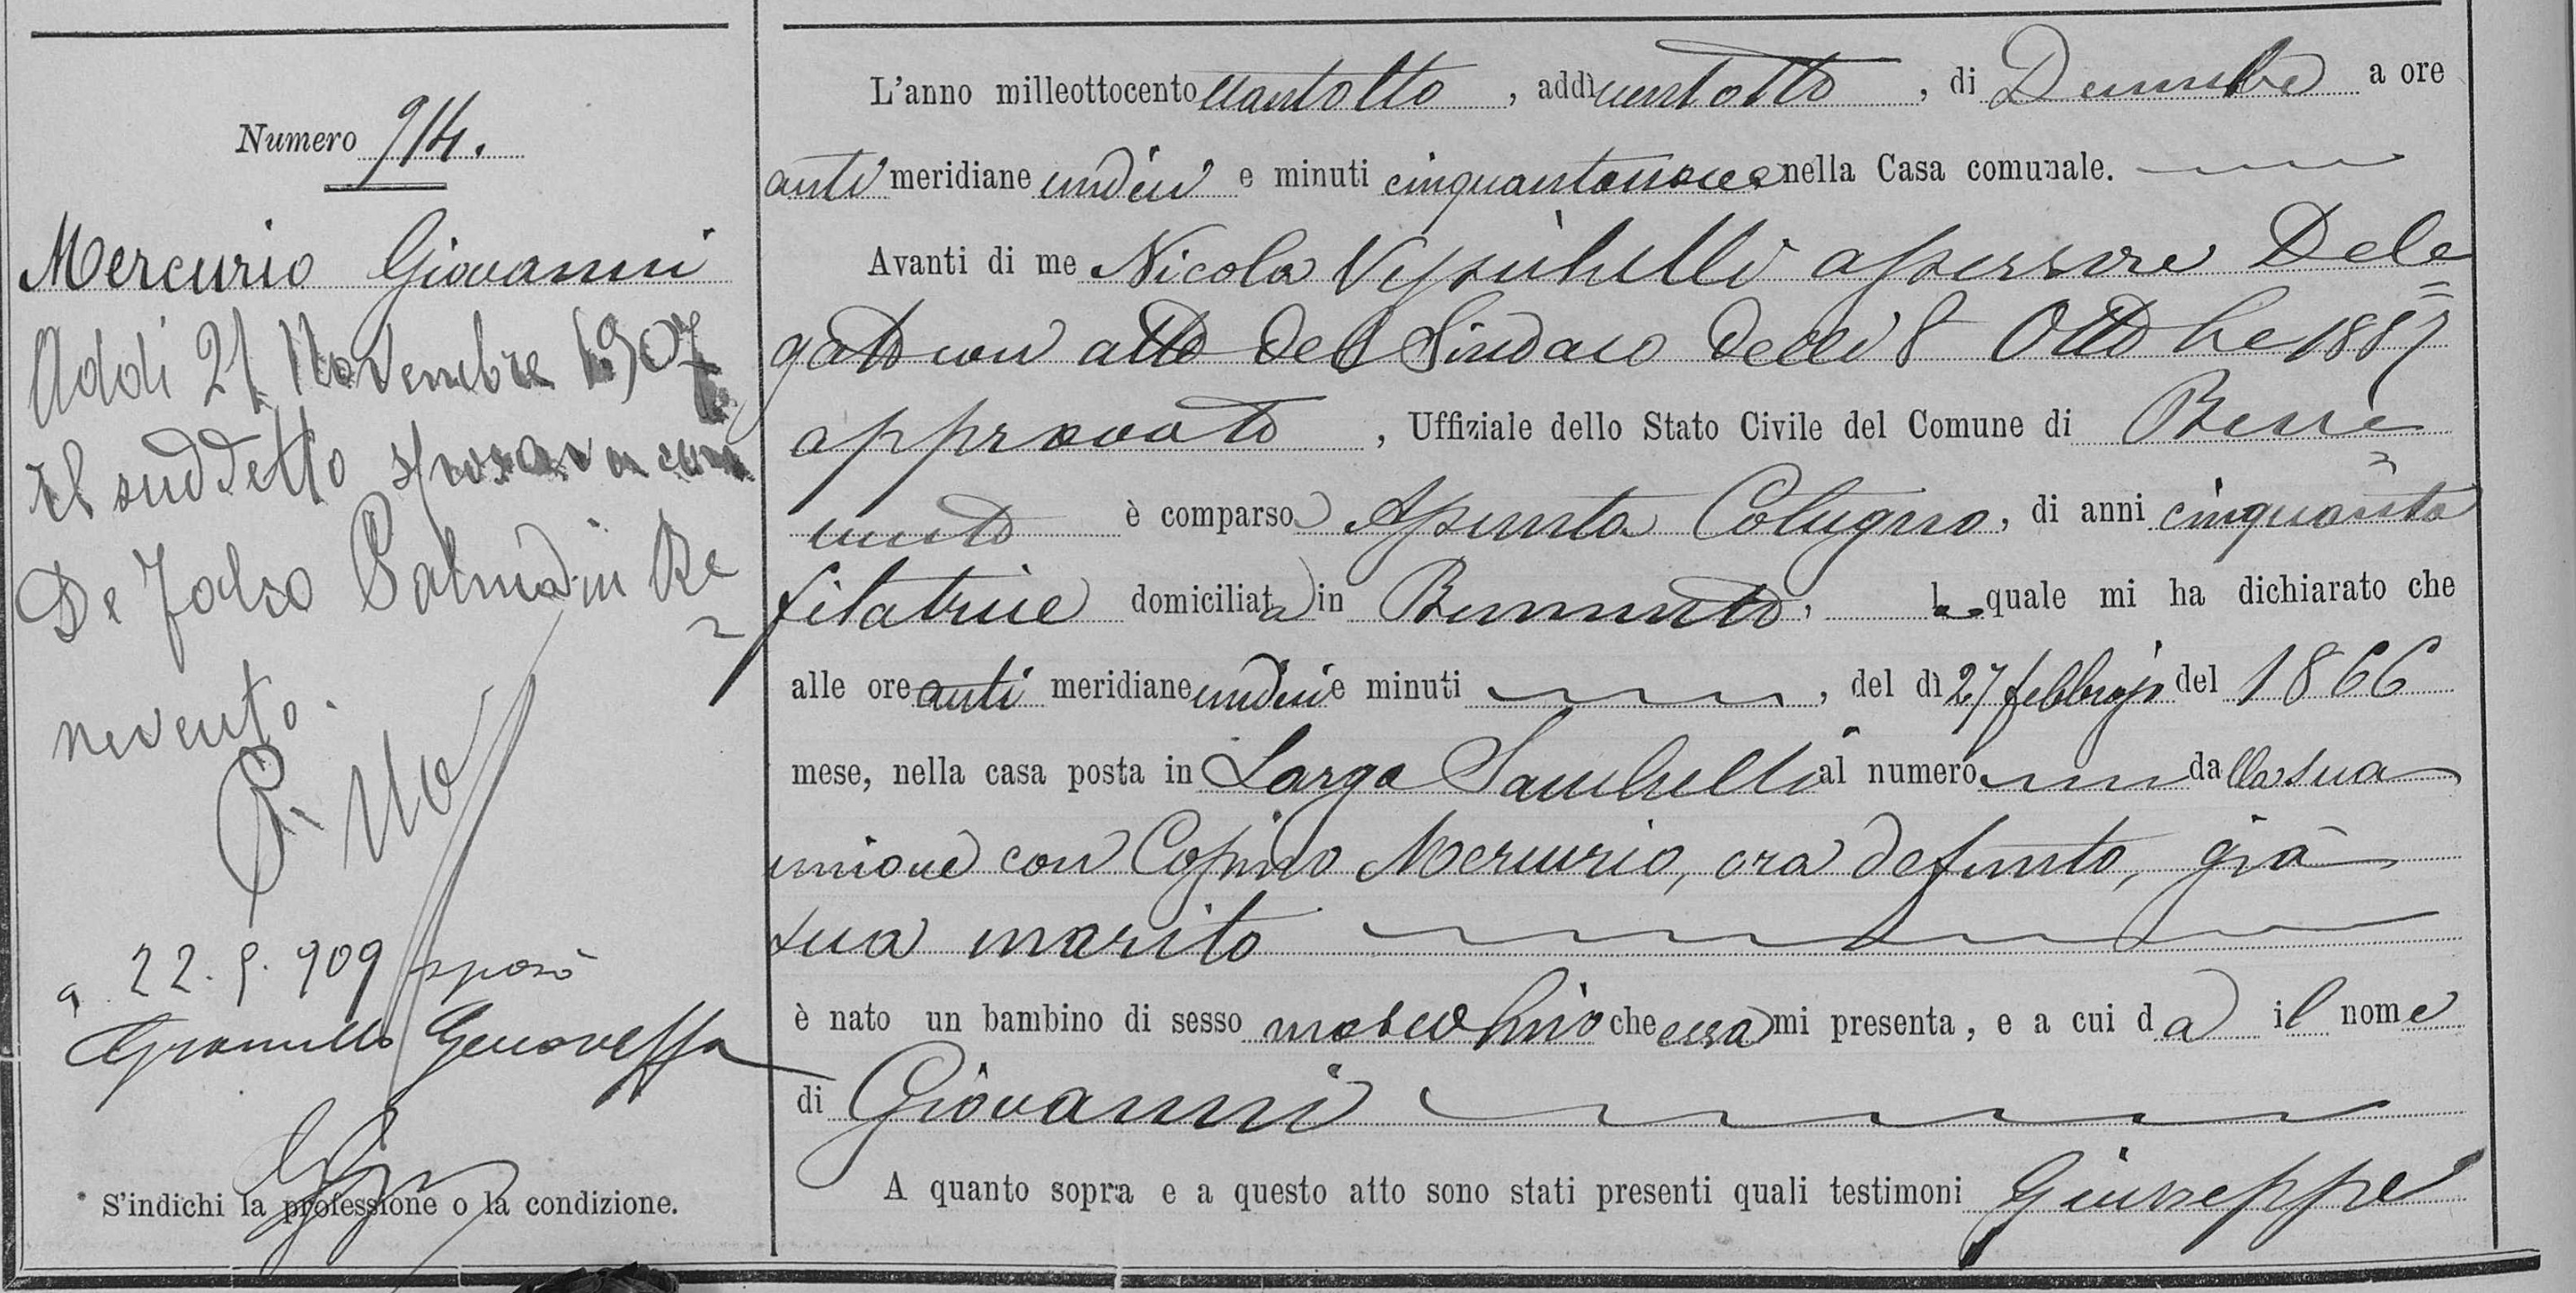 Numero 914.
Mercurio Giovanni
Addi 21 Novembre 1907
il suddetto sposava con
De Falco Palma in Be
nevento.
a 22. 9. 909 sposò
Genoveffa
* S'indichi la professione o la condizione.
L'anno milleottocento ottantotto, addì ventotto, di Decembre a ore
anti meridiane undici e minuti cinquantanove nella Casa comunale.
Avanti di me Nicola Vessichelli assessore Dele
gato con atto del Sindaco delli 8 Ottobre 1887
approvato, Uffiziale dello Stato Civile del Comune di Bene
vento è comparsa Assunta Cotugno, di anni cinquanta
filatrice domiciliata in Benevento, la quale mi ha dichiarato che
alle ore anti meridiane undici e minuti , del dì 27 febbrajo del 1866
mese, nella casa posta in Largo al numero dalla sua
unione con Cosimo Mercurio, ora defunto, già
suo marito
è nato un bambino di sesso maschino che essa mi presenta, e a cui dà il nome
di Giovanni
A quanto sopra e a questo atto sono stati presenti quali testimoni Giuseppe